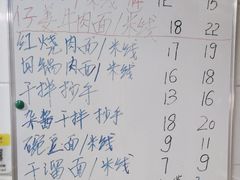 仔姜牛肉面/米线 18 22
红烧肉面/米线 17 19
回锅肉面/米线 16 18
干拌抄手 13 16
杂酱干拌抄手 18 20
豌豆面/米线 9 11
干溜面/米线 7 9